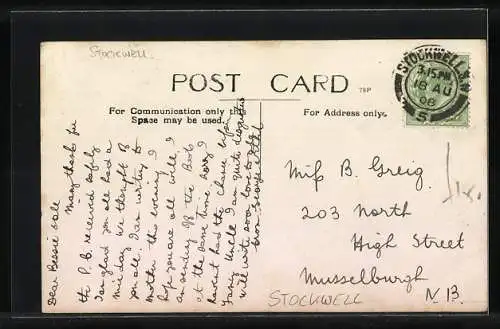 Stockwell.
POST CARD
TSP
For Communication only this
Space may be used.
For Address only.
STOCKWELL
3.15PM
18 AU
06
5
Dear Bessie
Many thanks for
the P.C. received safely
I am glad you all had a
nice day we thought of
you all I am writing to
Mother this evening I
hope you are all well I
am sending P.C. the Book
at the same time sorry I
havent had the chance before
Uncle I am quite
will write soon love to
from George & Ethel
Miss B. Greig
203 North
High Street
Musselburgh
N.B.
STOCKWELL